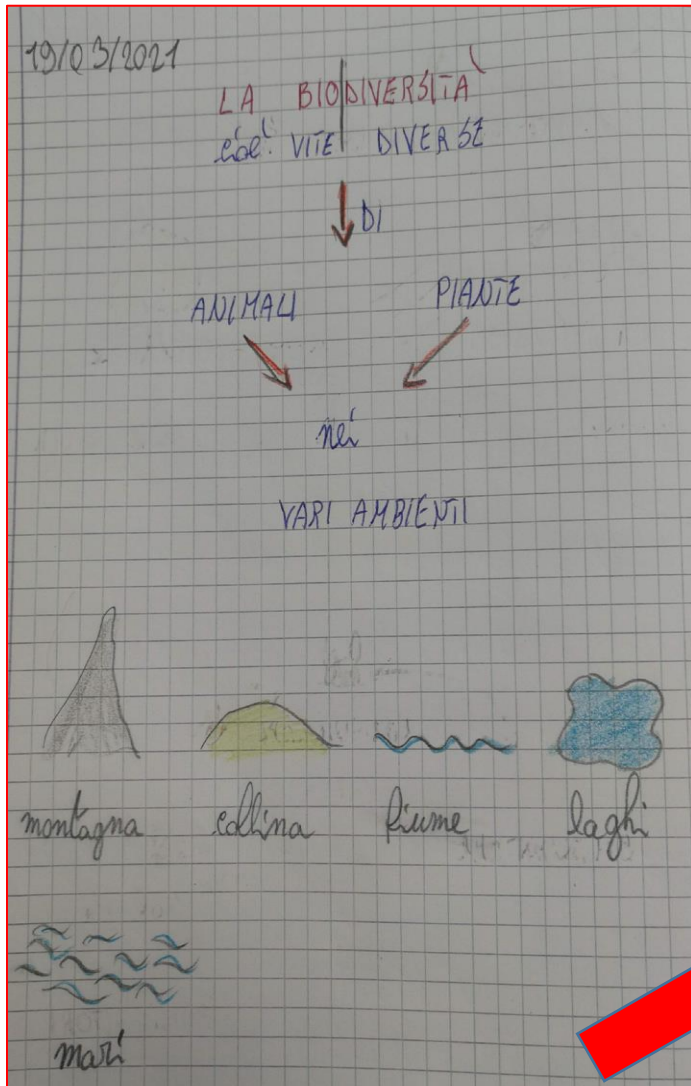 19/03/2021
LA BIODIVERSITÀ
cioè: VITE DIVERSE
DI
ANIMALI PIANTE
nei
VARI AMBIENTI
montagna collina fiume laghi
mari